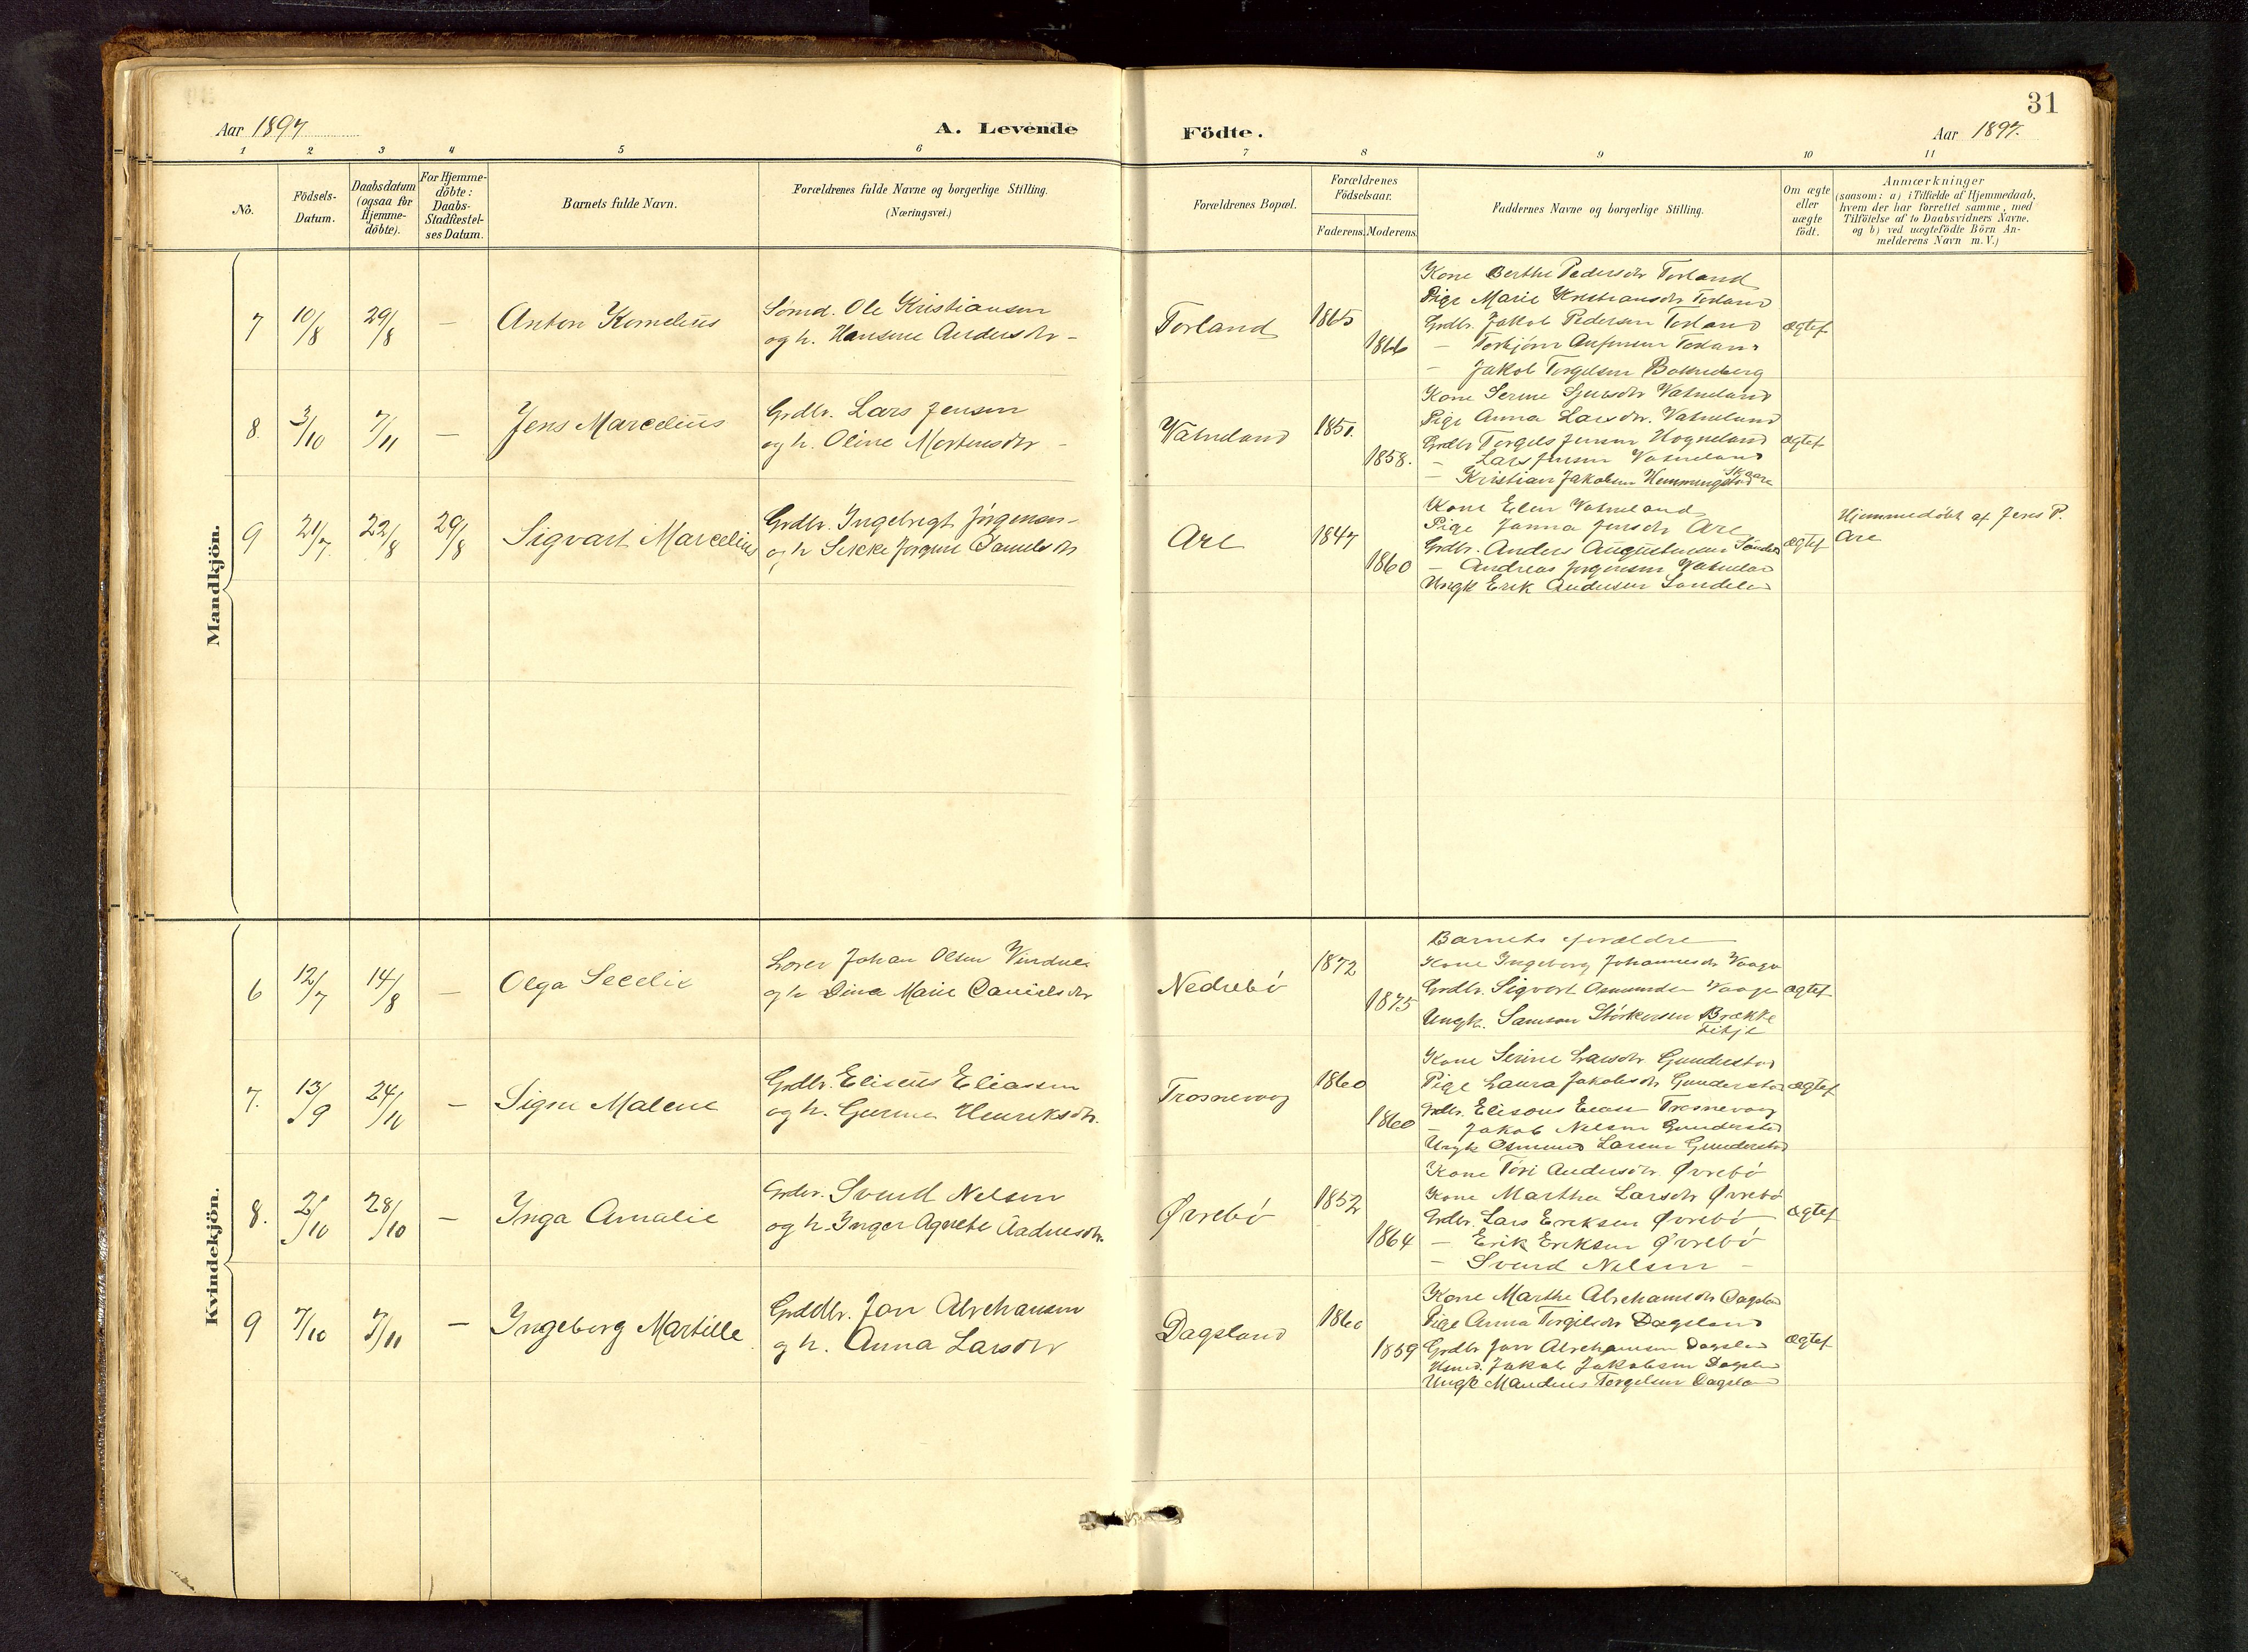 31
Aar 1897
A. Levende Födte.
Aar 1897.
1 2 3 4 5 6 7 8 9 10 11
No.
Födsels-
Datum.
Daabsdatum
(ogsaa for
Hjemme-
döbte).
For Hjemme-
döbte:
Daabs-
Stadfæstel-
ses Datum.
Barnets fulde Navn.
Forældrenes fulde Navne og borgerlige Stilling.
(Næringsvei.)
Forældrenes Bopæl.
Forældrenes
Födselsaar.
Faderens. Moderens.
Faddernes Navne og borgerlige Stilling.
Om ægte
eller
uægte
födt.
Anmærkninger
(saasom: a) i Tilfælde af Hjemmedaab,
hvem der har forrettet samme, med
Tilföielse af to Daabsvidners Navne,
og b) ved uægtefödte Börn An-
melderens Navn m. V.)
Mandkjön.
7 10/8 29/8 — Anton Kornelius
Sømd. Ole Kristiansen
og h. Hansine Andersdtr -
Torland
1865
1866
Kone Berthe Pedersdtr Torland
Pige Marie Kristiansdtr Torland
Grdbr. Jakob Pedersen Torland
— Torbjørn Torland
— Jakob Torgelsen
ægtef
8. 3/10 7/11 — Jens Marcelius
Grdbr. Lars Jensen
og h. Oline Mortensdtr -
Vatneland
1851.
1858.
Kone Serine Vatneland
Pige Anna Larsdtr. Vatneland
Grdbr Torgels Jensen Hogneland
— Lars Jensen Vatneland
— Kristian Jakobsen Skaare
ægtef
9 21/7. 22/8 29/8 Sigvart Marcelius
Grdbr. Ingebregt Jörgensen-
og h Sikke Jörgine Samuelsdtr
Are
1847
1860
Kone Elen Vatneland
Pige Janna Jensdtr Are
Grdbr. Anders Augustinsen
— Andreas Jörgensen Vatneland
Ungk Erik Andersen
ægtef
Hjemmedöbt af Jens P.
Are
Kvindekjön.
6 12/7 14/8 — Olga Secelie
Johan Olsen
og h Dina Marie Danielsdtr
Nedrebö
1872
1875
Barnets forældre
Kone Ingeborg Johannesdtr Vaage
Grdbr. Sigvart Osmundsen Vaage
Ungk. Samson Störkersen Brække
ægtef
7. 13/9 24/10 — Signe Malene
Grdbr. Eliseus Eliassen
og h. Gurine Henriksdtr.
Trosnevaag
1860
1860
Kone Serine Larsdtr Gunderstad
Pige Laura Jakobsdtr Gunderstad
Grdbr. Trosnevaag
— Jakob Nelsen Gunderstad
Ungk Osmund Larsen Gunderstad
ægtef
8. 2/10 28/10 — Inga Amalie
Grdbr. Svend Nelsen
og h. Inger Agnete Aadnesdtr.
Øvrebö
1852
1864
Kone Töri Andersdtr. Øvrebö
Kone Martha Larsdtr Øvrebö
Grdbr. Lars Eriksen Øvrebö
— Erik Eriksen Øvrebö
— Svend Nelsen —
ægtef
9 7/10 7/11 — Ingeborg Martille
Grdbr. Jon Abrehamsen
og h. Anna Larsdtr
Dagsland
1860
1859
Kone Marthe Abrehamsdtr Dagsland
Pige Anna Torgilsdtr Dagsland
Grdbr Jon Abrehamsen Dagsland
Husmd. Jakob Jakobsen Dagsland
Ungk Mandius Torgelsen Dagsland
ægtef